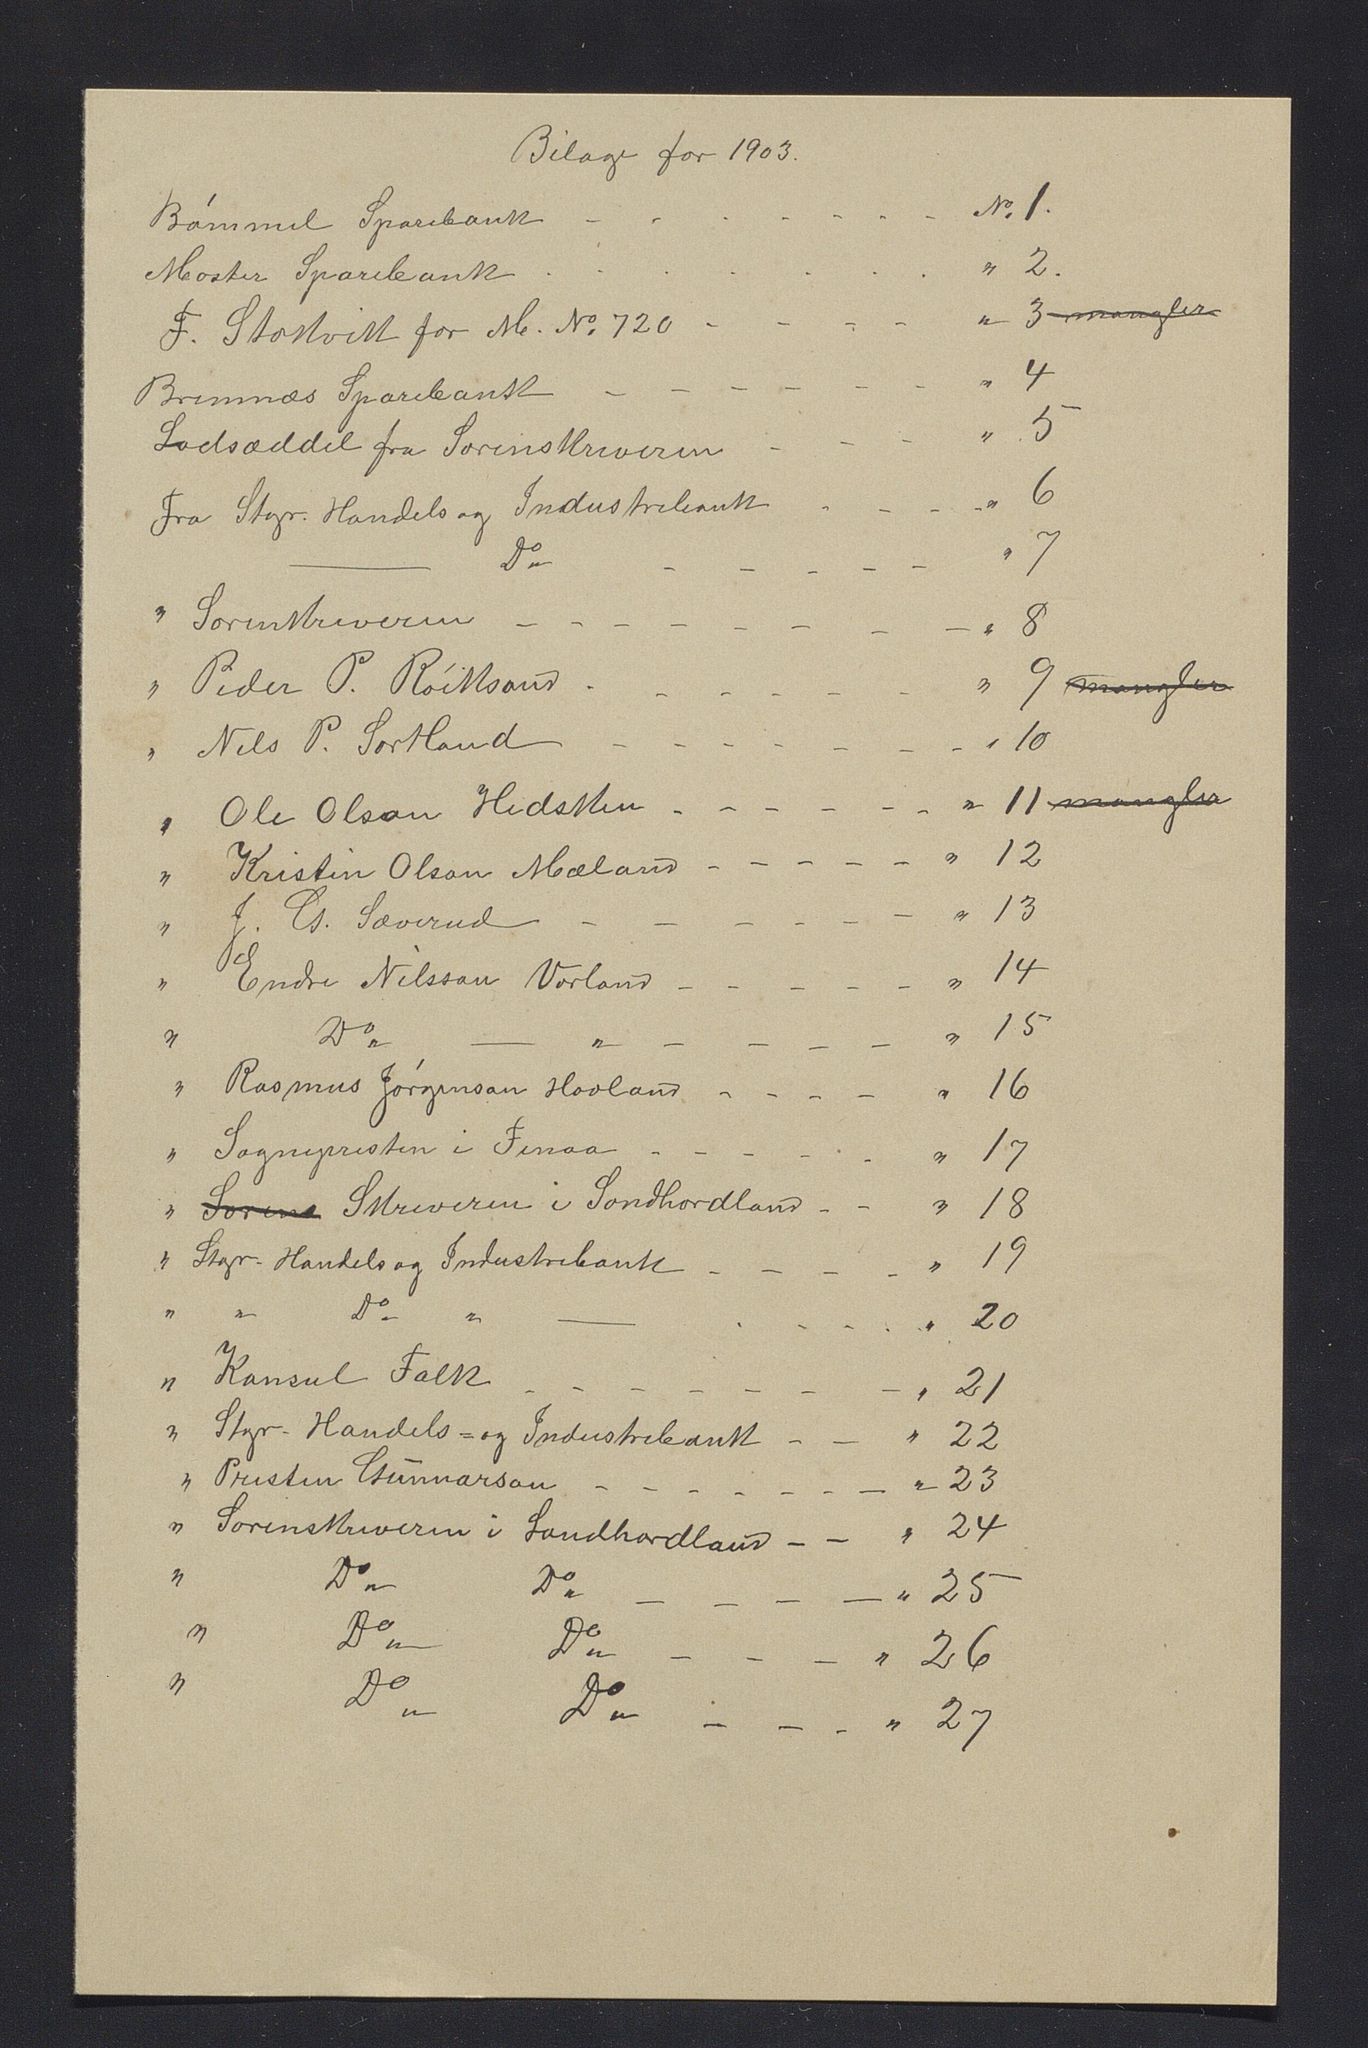 Bilage for 1903.
Bómmel Sparebank - - - - - - - - No. 1.
Moster Sparebank . . . . . . . . " 2.
F. Stokvik for M. No. 720 - - - - " 3 mangler
Bremnæs Sparebank - - - - - - " 4
Lodsæddel fra Sorenskriveren - - - " 5
Fra Stgr. Handels og Industribank - - - - " 6
—— Do " - - - - - " 7
" Sorenskriveren - - - - - - - - - " 8
" Peder P. Róiksund - - - - - - " 9 mangler
" Nels P. Sortland - - - - - - - - " 10
" Ole Olson Hidsken - - - - - - - " 11 mangler
" Kristin Olson Mæland - - - - - - " 12
" J. G. Sæverud - - - - - - - " 13
" Endre Nilsson Vorland - - - - - " 14
" Do " — " - - - - " 15
" Rasmus Jórgenson Hovland - - - - " 16
" Sognepresten i Finaa - - - - - " 17
" Sorens Skriveren i Sondhordland - - " 18
" Stgr- Handels og Industribank - - - - " 19
" " Do " " — - - - - " 20
" Konsul Falk - - - - - - - - " 21
" Stgr- Handels = og Industribank - - " 22
" Presten Gunnarson - - - - - - - " 23
" Sorenskriveren i Sondhordland - - " 24
" Do " Do " - - - - " 25
" Do " Do " - - - " 26
" Do " Do " - - - - " 27